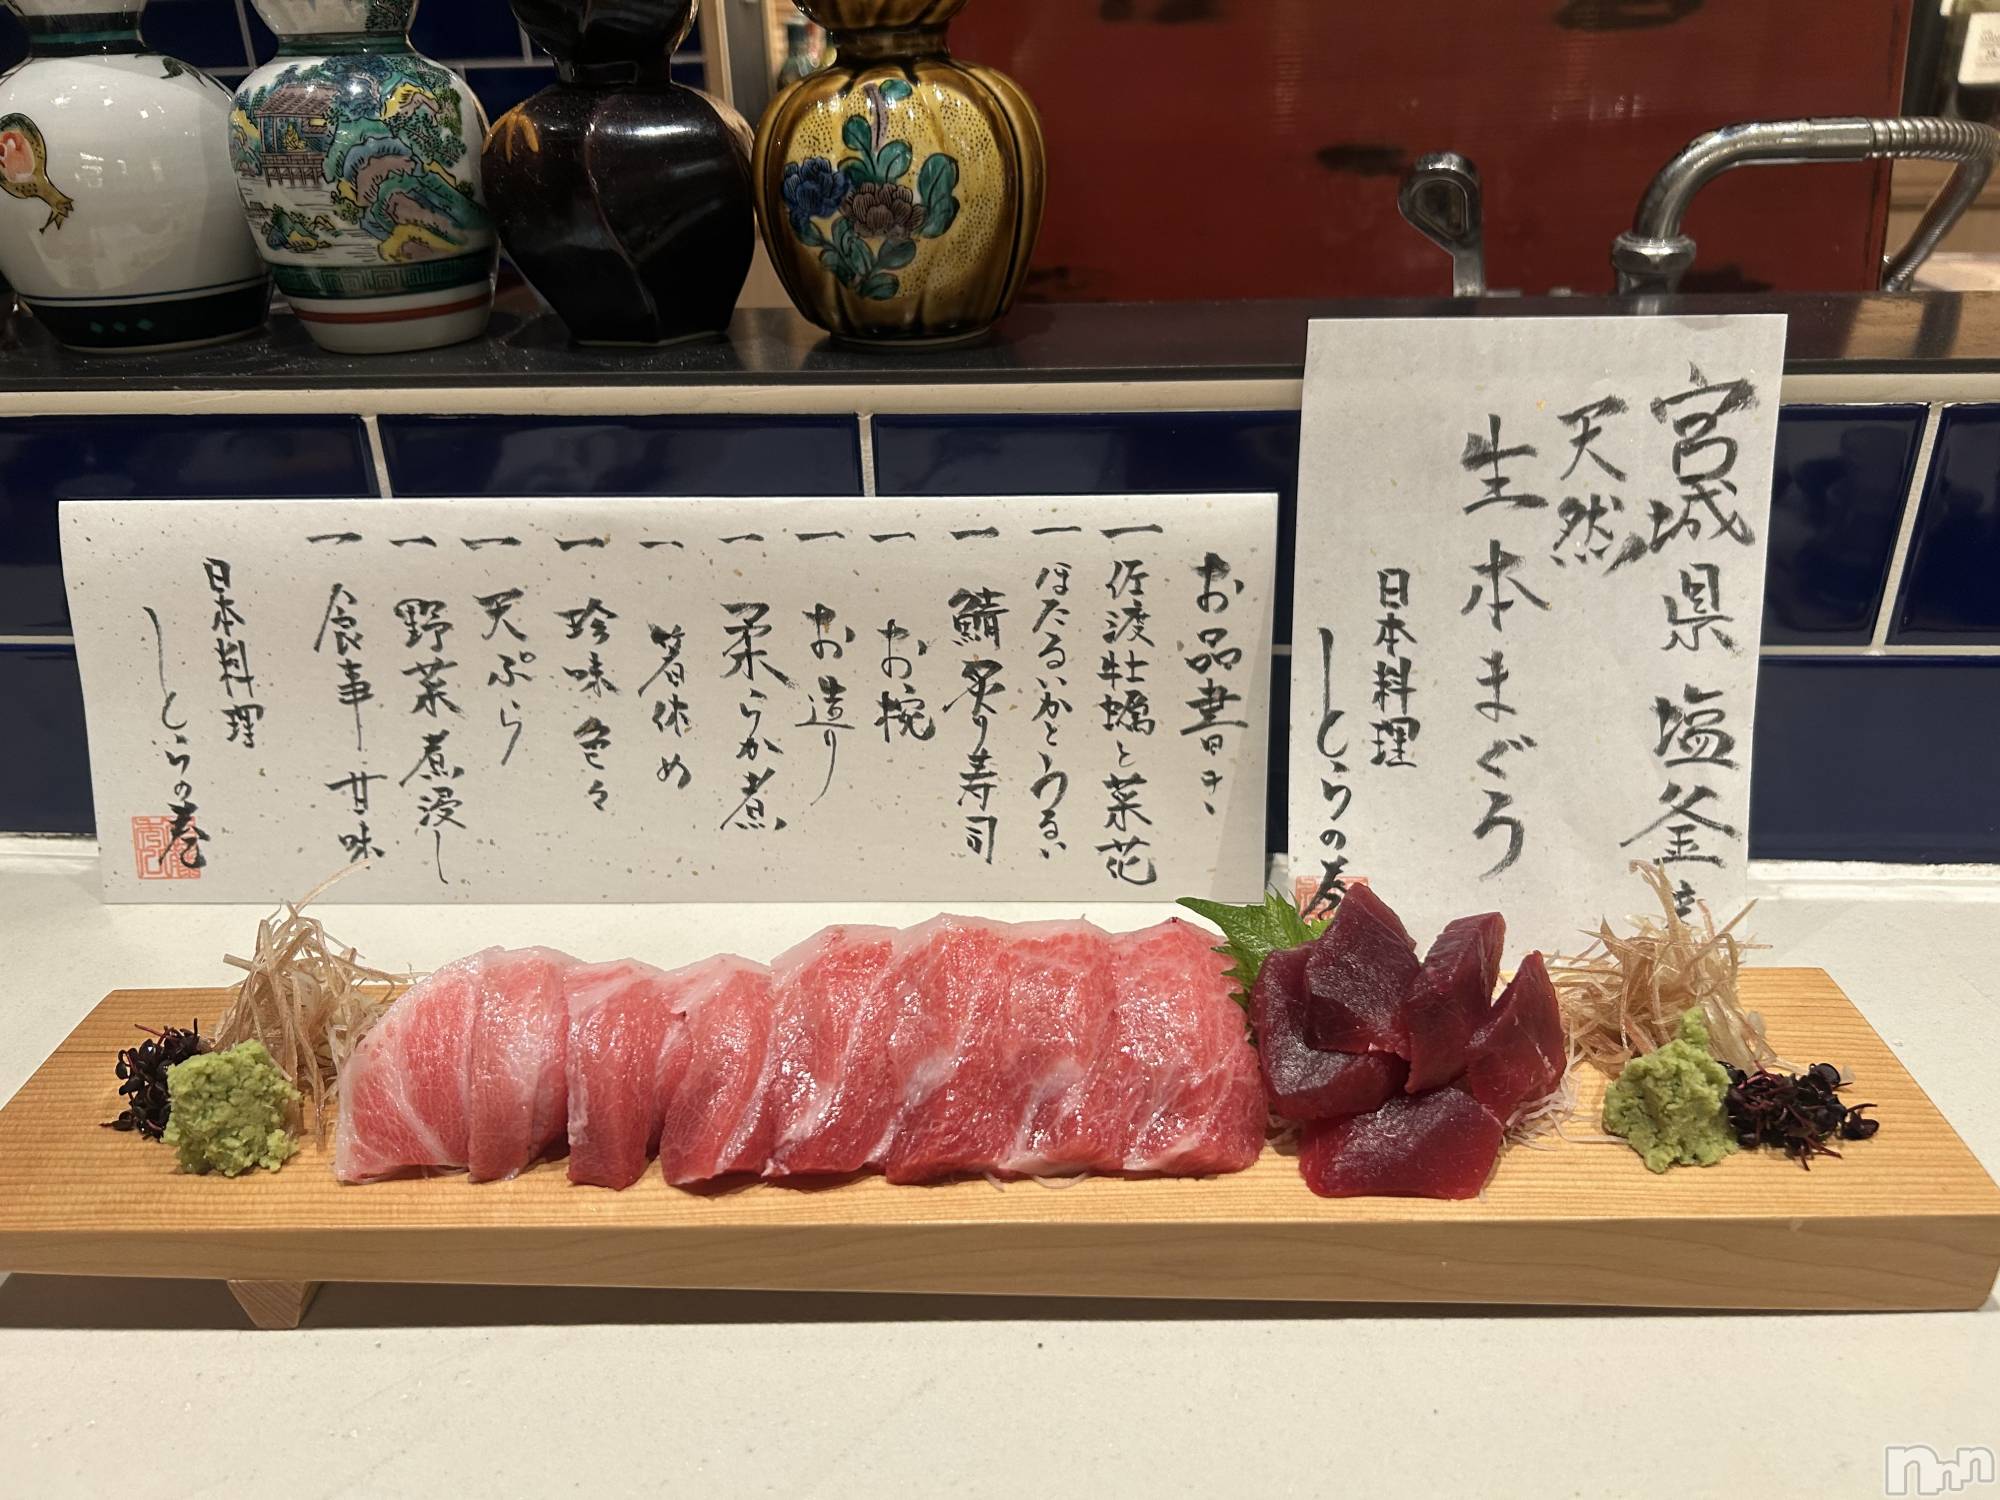 宮城県 塩釜産
天然
生本まぐろ
日本料理
しとらの巻
お品書き
一 佐渡牡蠣と菜花
一 ほたるいかとうるい
一 鯖炙り寿司
一 お椀
一 お造り
一 柔らか煮
一 箸休め
一 珍味色々
一 天ぷら
一 野菜煮浸し
一 食事 甘味
日本料理
しとらの巻
nnn